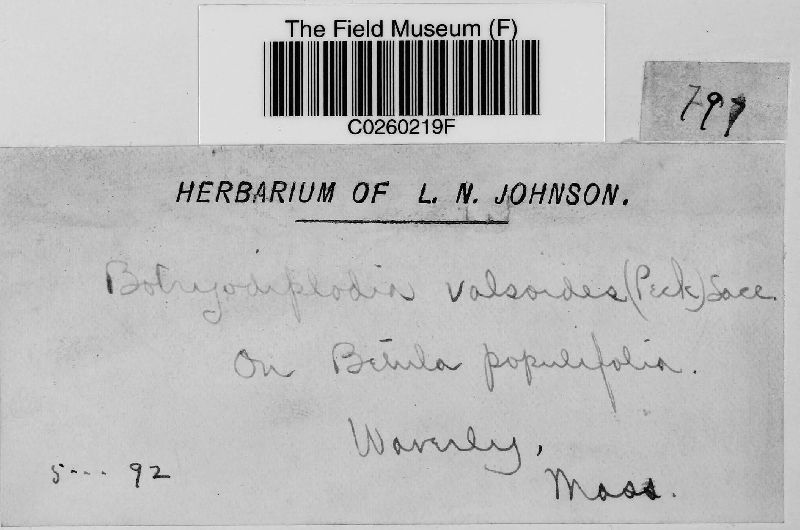 The Field Museum (F)
C0260219F
797
HERBARIUM OF L. N. JOHNSON.
Botryodiplodia valsoides (Peck) Sacc.
On Betula populifolia.
Waverly,
Mass.
5--- 92